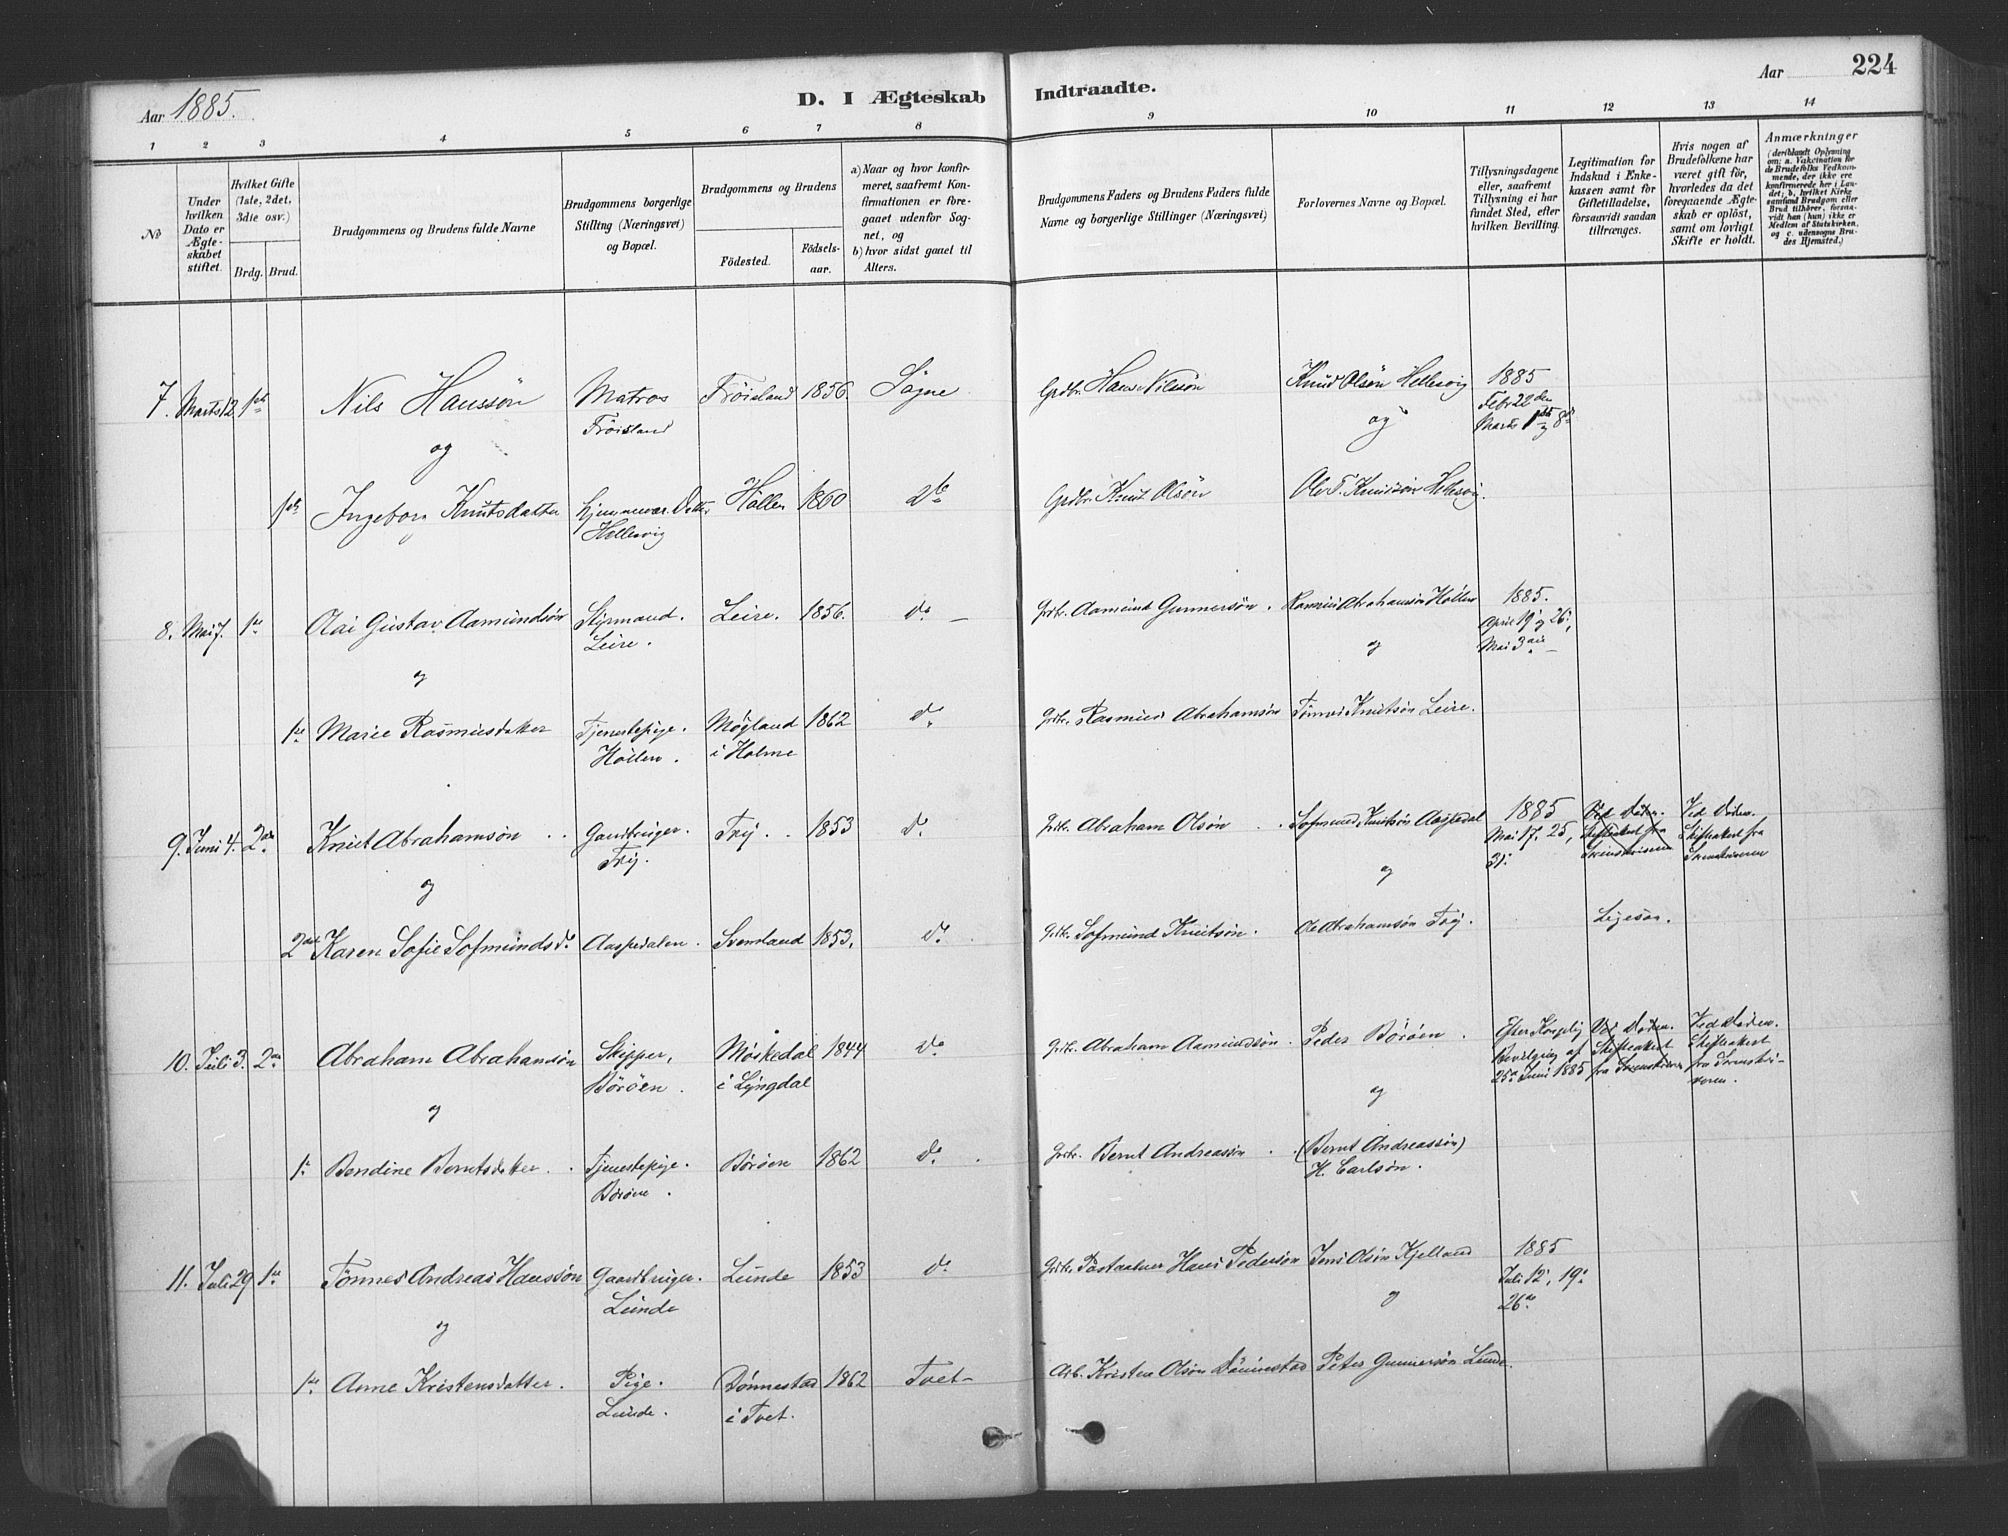 Aar 1885.
D. I Ægteskab Indtraadte.
Aar 224
1 2 3 4 5 6 7 8 9 10 11 12 13 14
No
Under hvilken Dato er Ægteskabet stiftet.
Hvilket Gifte (1ste, 2det, 3die osv.)
Brdg. Brud.
Brudgommens og Brudens fulde Navne
Brudgommens borgerlige Stilling (Næringsvei) og Bopæl.
Brudgommens og Brudens
Fødested.
Fødselsaar.
a) Naar og hvor konfirmeret, saafremt Konfirmationen er foregaaet udenfor Sognet, og
b) hvor sidst gaaet til Alters.
Brudgommens Faders og Brudens Faders fulde Navne og borgerlige Stillinger (Næringsvei)
Forlovernes Navne og Bopæl.
Tillysningsdagene eller, saafremt Tillysning ei har fundet Sted, efter hvilken Bevilling.
Legitimation for Indskud i Enkekassen samt for Giftetilladelse, forsaavidt saadan tiltrænges.
Hvis nogen af Brudefolkene har været gift før, hvorledes da det foregaaende Ægteskab er opløst, samt om lovligt Skifte er holdt.
Anmærkninger (deriblandt Oplysning om: a. Vakcination for de Brudefolks Vedkommende, der ikke ere konfirmerede her i Landet; b. hvilket Kirkesamfund Brudgom eller Brud tilhører, forsaavidt han (hun) ikke er Medlem af Statskirken, og c. udensogns Brudes Hjemsted.)
7. Marts 12 1ste Nils Hanssøn Matros Frøisland 1856. Søgne Grdbr. Hans Nilssøn Knud Olsøn Hellesvig 1885
Frøisland og Febr 22den
og Marts 1ste og 8de
1ste Ingeborg Knutsdatter hjemmevær. Datter Høllen 1860 do Grdbr. Knut Olsøn Ole T. Knudsøn Hellesvig.
Hellesvig
8. Mai 7. 1ste Olai Gustav Aamundsøn Styrmand. Leire. 1856. do Grdbr. Aamund Gunnersøn. Rasmus Abrahamsøn Høllen 1885.
Leire. April 19 og 26,
og og Mai 3die
1ste Marie Rasmusdatter Tjenestepige. Møgland 1862 do Grdbr. Rasmus Abrahamsøn Tønnes Knutsøn Leire.
Høllen. i Holme
9. Juni 4. 2den Knut Abrahamsøn Gaardbruger. Try. 1853 do Grdbr. Abraham Olsøn Sofmund Knutsøn Aaspedal 1885 Ved Døden. Ved Døden.
Try. Mai 17. 25, Skifteakt fra Skifteakt fra
og og 31. Sorenskriveren Sorenskriveren
2den Karen Sofie Sofmundsd. Aaspedalen. Svensland 1853. do Grdbr. Sofmund Knutsøn. Ole Abrahamsøn Try. Ligesaa.
10. Juli 3. 2den Abraham Abrahamsøn Skipper, Møskedal 1844 do Grdbr. Abraham Aamundsøn. Peder Børøen. Efter Kongelig Ved Døden. Ved Døden.
Børøen. i Lyngdal Bevilging af Skifteakt Skifteakt
og og 25de Juni 1885 fra Sorenskriveren fra Sorenskriveren.
1ste Bendine Berntsdatter. Tjenestepige. Børøen 1862 do Grdbr. Bernt Andreassøn. (Bernt Andreassøn)
Børøen. H. Carlsøn.
11. Juli 29 1ste Tønnes Andreas Hanssøn Gaardbruger. Lunde 1853 do Grdbr. Hans Pedersøn Jens Olsøn Kjelland 1885
Lunde Juli 12, 19.
og og 26de
1ste Anne Kristensdatter. Pige. Dønnestad 1862 Tvet Arb. Kristen Olsøn Dønnestad Peter Gunnersøn Lunde.
Lunde. i Tvet.